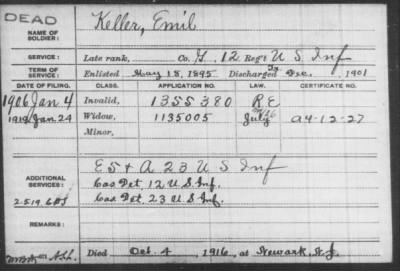 DEAD
NAME OF SOLDIER: Keller, Emil
SERVICE: Late rank, Co. G, 12 Reg't U S Inf
TERM OF SERVICE: Enlisted May 18, 1895 Discharged Dec. 1901
DATE OF FILING. CLASS. APPLICATION NO. LAW. CERTIFICATE NO.
1906 Jan 4 Invalid, 1355380 R E
Jan. 24 Widow, 1135005 July 16 a4-12-27
Minor,
ADDITIONAL SERVICES: E 5 & A 23 U S Inf
Cas Det. 12 U.S. Inf.
Cas Det. 23 U.S. Inf.
REMARKS:
Died Oct. 4 1916, at Newark, N. J.